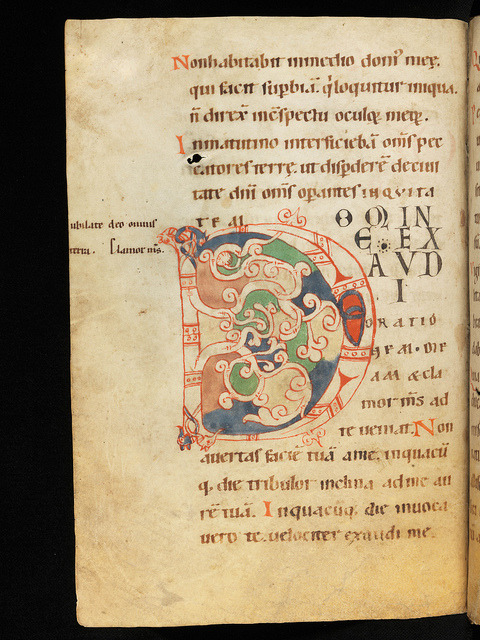 Non habitabit in medio dom' meę.
qui facit supbiā. q̄ loquitur iniqua.
n̄ direx̄ in c̄spectu oculoꝝ meoꝝ.
In matutino interficiebā om̄s pec
catores terrę. ut disꝑderē de ciui
tate dn̄i om̄s oꝑantes INIQVITA
TEM
ubilate deo omnis
terra.
Clamor m̄s.
DOMINE
EXAVDI
ORATIO
NEM. ME
AM & cla
mor m̄s ad
te ueniat. Non
auertas faciē tuā a me, inquacū
q, die tribulor inclina ad me au
rē tuā. Inquacūq, die inuoca
uero te. uelociter exaudi me.